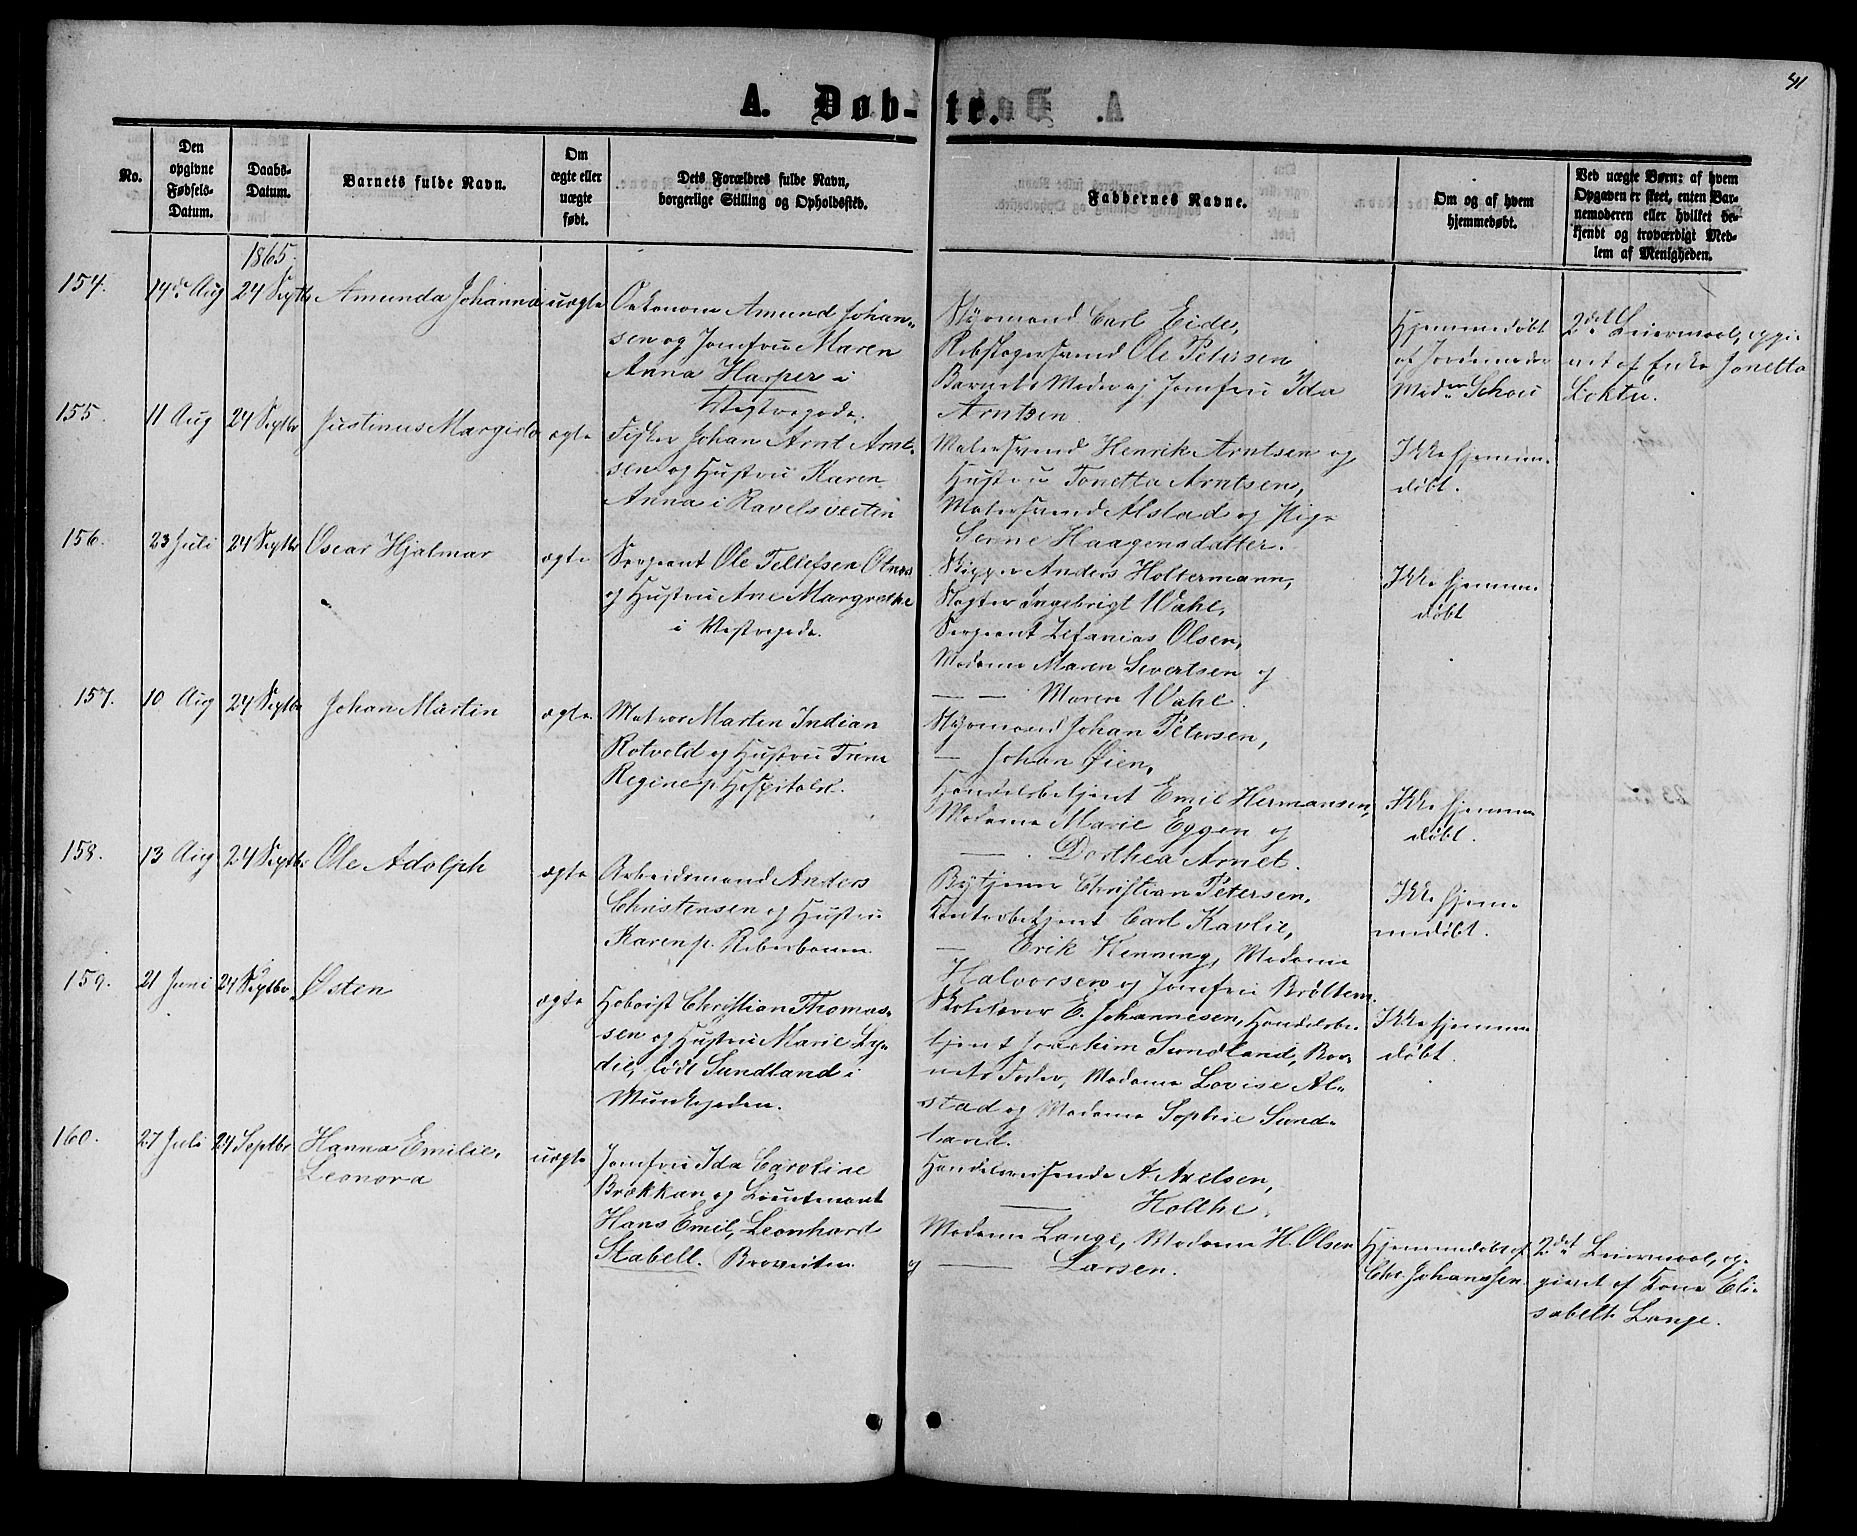 41
A. Døb-te.
No.
Den opgivne Fødsels-Datum.
Daabs-Datum.
Barnets fulde Navn.
Om ægte eller uægte født.
Dets Forældres fulde Navn, borgerlige Stilling og Opholdssted.
Faddernes Navne.
Om og af hvem hjemmedøbt.
Ved uægte Børn: af hvem Opgaven er skeet, enten Barnemoderen eller hvilket bekjendt og troværdigt Medlem af Menigheden.
1865.
154.
14de Aug
24 Septbr
Amunda Johanna
uægte
Oekonom Amund Johan-
sen og Jomfru Maren
Anna Harper i
Vestregade.
Styrmand Carl Eide,
Rebslagersvend Ole Petersen
Barnets Moder og Jomfru Ida
Arntsen
Hjemmedøbt
af Jordemoder
Mad. Schou
2det Leiermaal, opgi-
vet af Enke Jonetta
Loktu.
155.
11 Aug
24 Septbr
Justinus Margido
ægte
Fisker Johan Arnt Arnt-
sen og Hustru Karen
Anna i Ravelsveiten
Malersvend Henrik Arntsen og
Hustru Tonetta Arntsen,
Malersvend Alstad og Pige
Haagensdatter.
Ikke hjemme-
døbt.
156.
23 Juli
24 Septbr
Oscar Hjalmar
ægte
Sergeant Ole Tellefsen
og Hustru Ane Margrethe
i Vestregade.
Skipper Anders Holtermann,
Slagter Ingebrigt Wahl,
Sergeant Zefanias Olsen,
Madame Maren Sivertsen og
— — Maren Wahl.
Ikke hjemme-
døbt
157.
10 Aug
24 Septbr
Johan Martin
ægte
Matros Martin Indian
Rotvold og Hustru Trine
Regine p. Hospitalsl.
Styrmand Johan Petersen,
— Johan Øien,
Handelsbetjent Emil Hermansen,
Madame Marie Eggen og
— Dorthea Arnet.
Ikke hjemme-
døbt.
158.
13 Aug
24 Septbr
Ole Adolph
ægte
Arbeidsmand Anders
Christensen og Hustru
Karen p.
Bytjener Christian Petersen,
Contorbetjent Carl Kavlie,
— Erik Kenning, Madame
Halvorsen og Jomfru Brøltem.
Ikke hjem-
medøbt.
159.
21 Juni
24 Septbr
Østen
ægte
Christian Thomas-
sen og Hustru Marie Ly-
die, født Sundland i
Munkegaden.
E. Johannesen, Handelsbe-
tjent Joachim Sundland, Bar-
nets Fader, Madame Lovise Al-
stad og Madame Sophie Sund-
land.
Ikke hjemme-
døbt.
160.
27 Juli
24 Septbr
Hanna Emilie
Leonora
uægte
Jomfru Ida Caroline
Brækkan og Lieutenant
Hans Emil Leonhard
Stabell. Braveiten
Handelsreisende A. Axelsen,
— Holthe,
Madame Lange, Madame H. Olsen
og — Larsen.
Hjemmedøbt af
Chr. Johanssen.
2det Leiermaal, op-
givet af Kone Eli-
sabeth Lange.